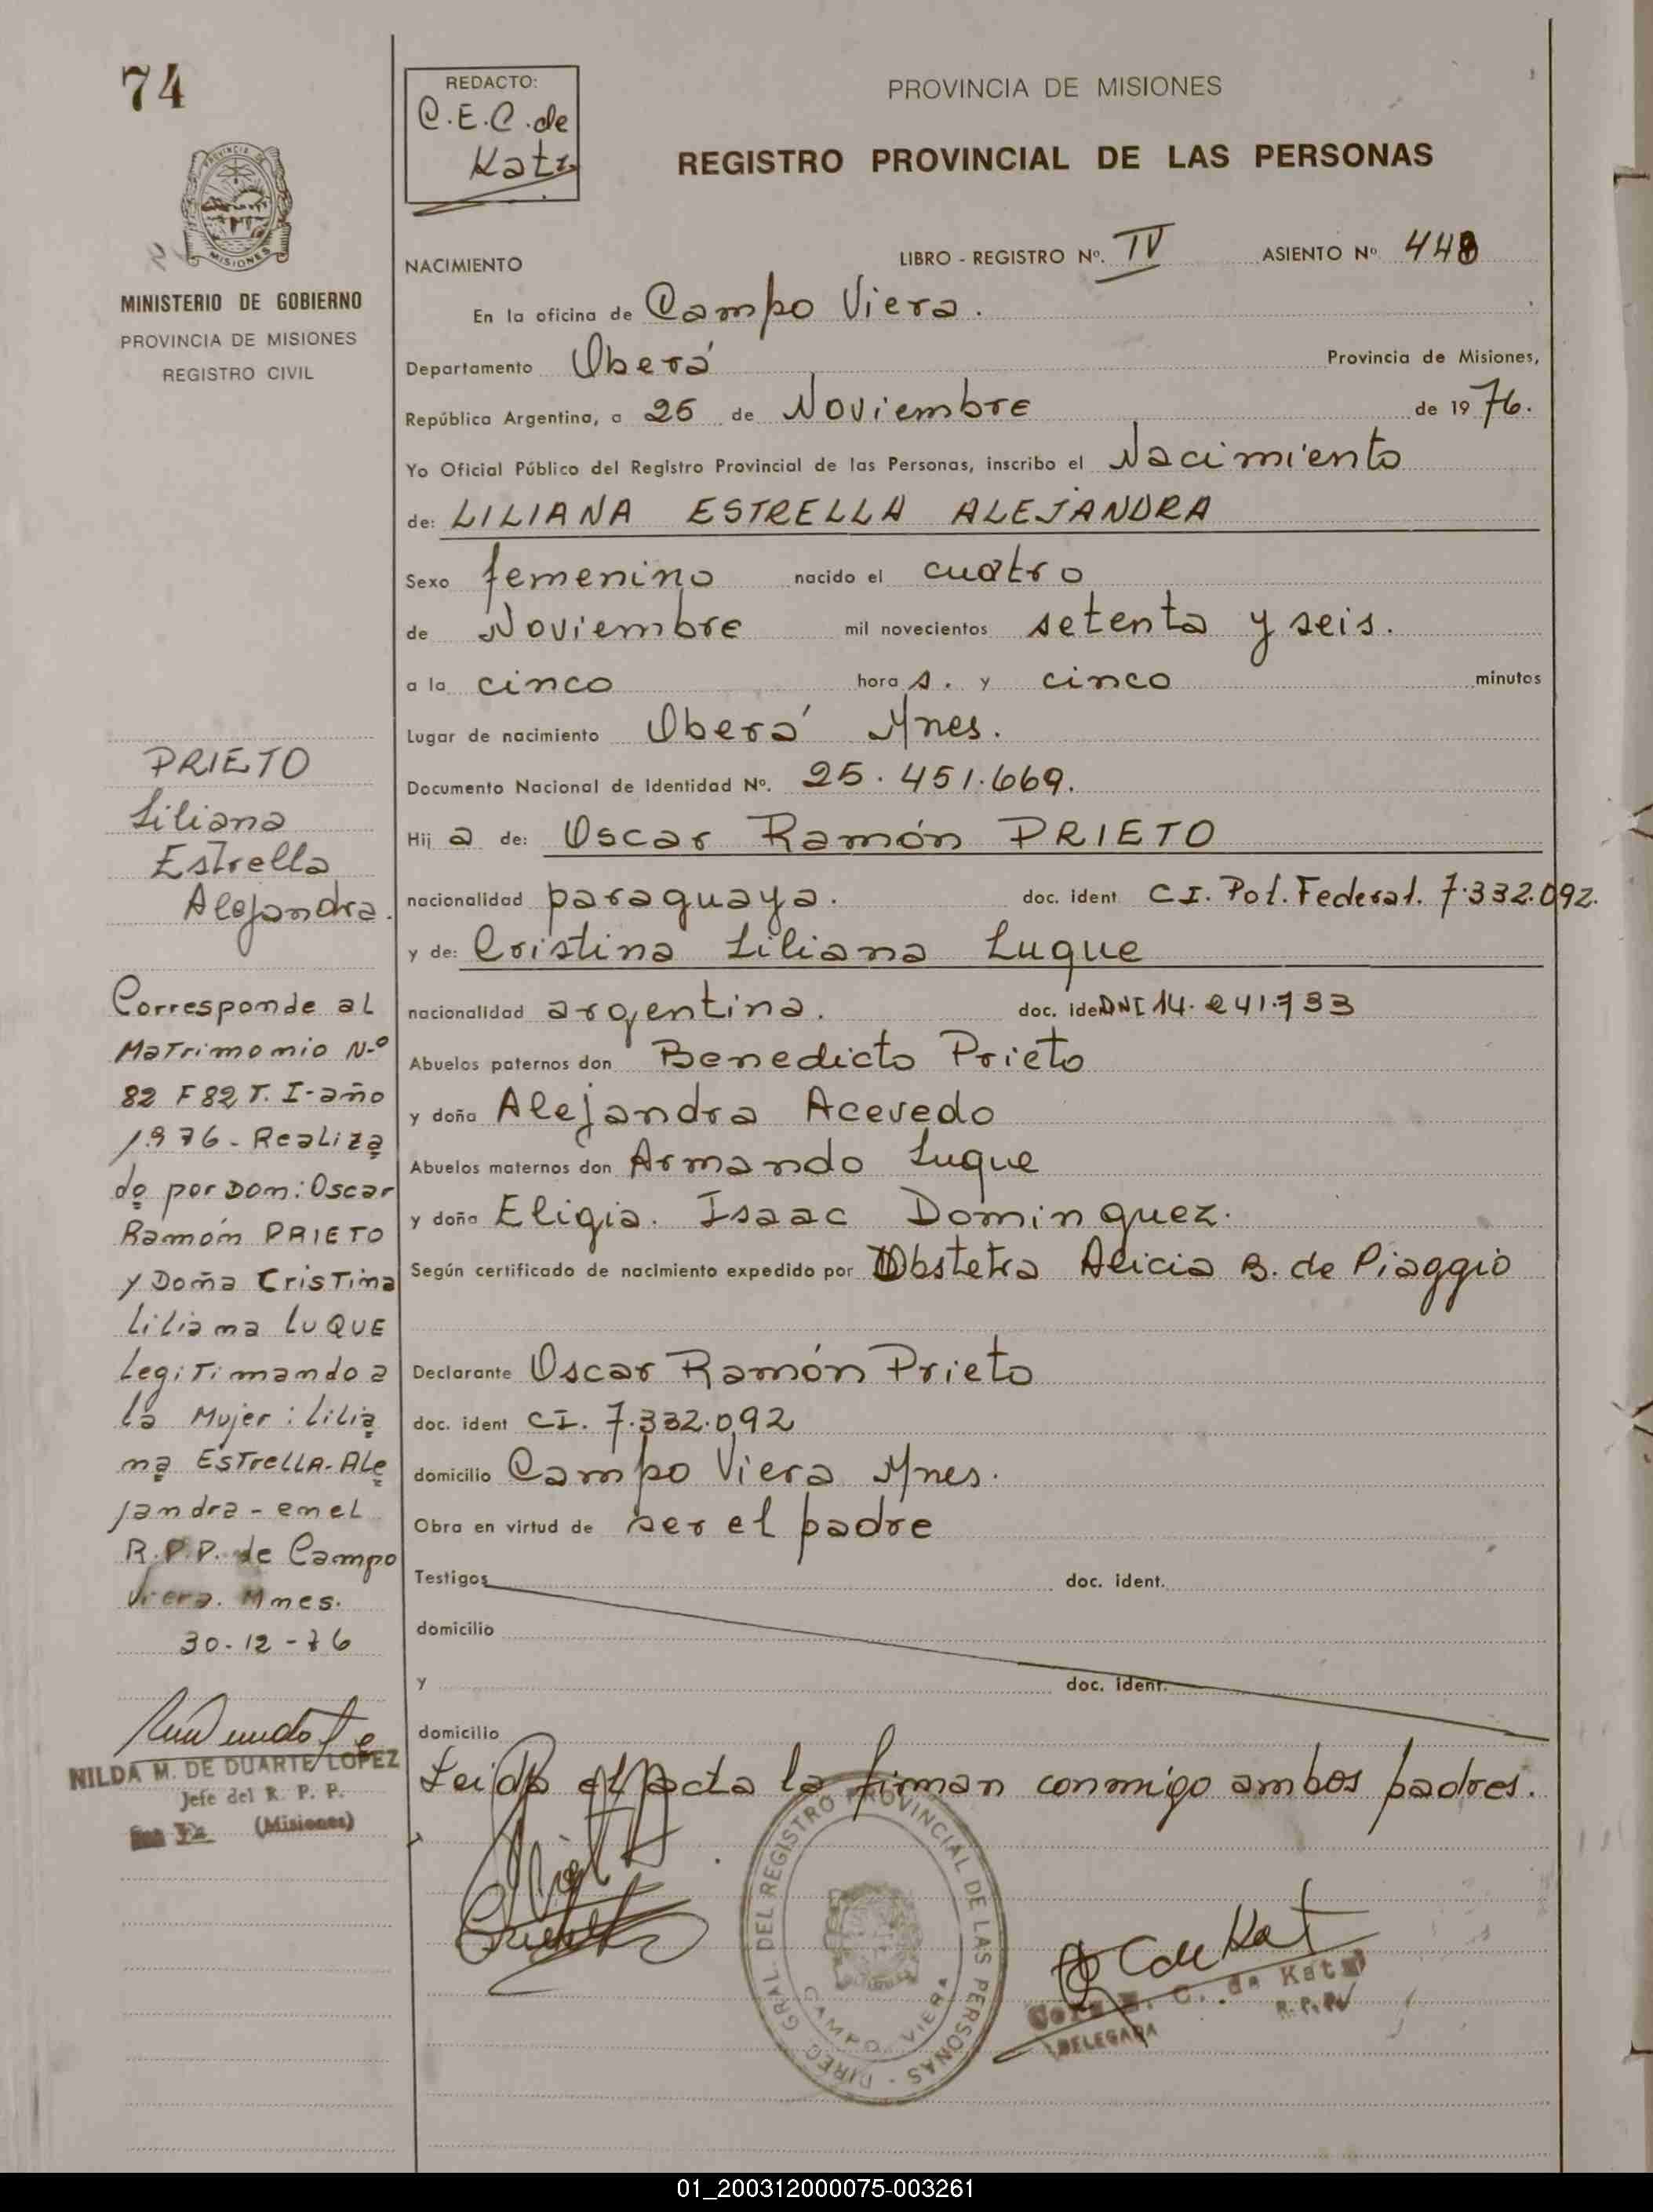 74
REDACTO:
C.E.C. de
Katz
PROVINCIA DE MISIONES
REGISTRO PROVINCIAL DE LAS PERSONAS
PROVINCIA DE
MISIONES
MINISTERIO DE GOBIERNO
PROVINCIA DE MISIONES
REGISTRO CIVIL
NACIMIENTO LIBRO - REGISTRO Nº. IV ASIENTO Nº 448
En la oficina de Campo Viera.
Departamento Oberá Provincia de Misiones,
República Argentina, a 25 de Noviembre de 1976.
Yo Oficial Público del Registro Provincial de las Personas, inscribo el Nacimiento
de: LILIANA ESTRELLA ALEJANDRA
Sexo femenino nacido el cuatro
de Noviembre mil novecientos setenta y seis.
a la cinco hora s. y cinco minutos
Lugar de nacimiento Oberá Mnes.
Documento Nacional de Identidad Nº. 25.451.669.
Hij a de: Oscar Ramón PRIETO
nacionalidad paraguaya. doc. ident CI. Pol. Federal. 7.332.092.
y de: Cristina Liliana Luque
nacionalidad argentina. doc. ide DNI 14.241.733
Abuelos paternos don Benedicto Prieto
y doña Alejandra Acevedo
Abuelos maternos don Armando Luque
y doña Eligia. Isaac Dominguez.
Según certificado de nacimiento expedido por Obstetra Alicia B. de Piaggio
Declarante Oscar Ramón Prieto
doc. ident CI. 7.332.092
domicilio Campo Viera Mnes.
Obra en virtud de ser el padre
Testigos doc. ident.
domicilio
y doc. ident.
domicilio
Leida el acta la firman conmigo ambos padres.
PRIETO
Liliana
Estrella
Alejandra.
Corresponde al
Matrimonio N-º
82 F 82 T. I-año
1.976- Realiza
do por Don: Oscar
Ramón PRIETO
y Doña Cristina
Liliana LUQUE
Legitimando a
la Mujer: Lilia
na Estrella-Ale
jandra - en el
R.P.P. de Campo
Viera. Mnes.
30-12-76
NILDA M. DE DUARTE LOPEZ
Jefe del R. P. P.
(Misiones)
DIREC. GRAL. DEL REGISTRO PROVINCIAL DE LAS PERSONAS -
CAMPO VIERA
C de Kat
C. de Katz
R. P. P.
DELEGADA
01_200312000075-003261